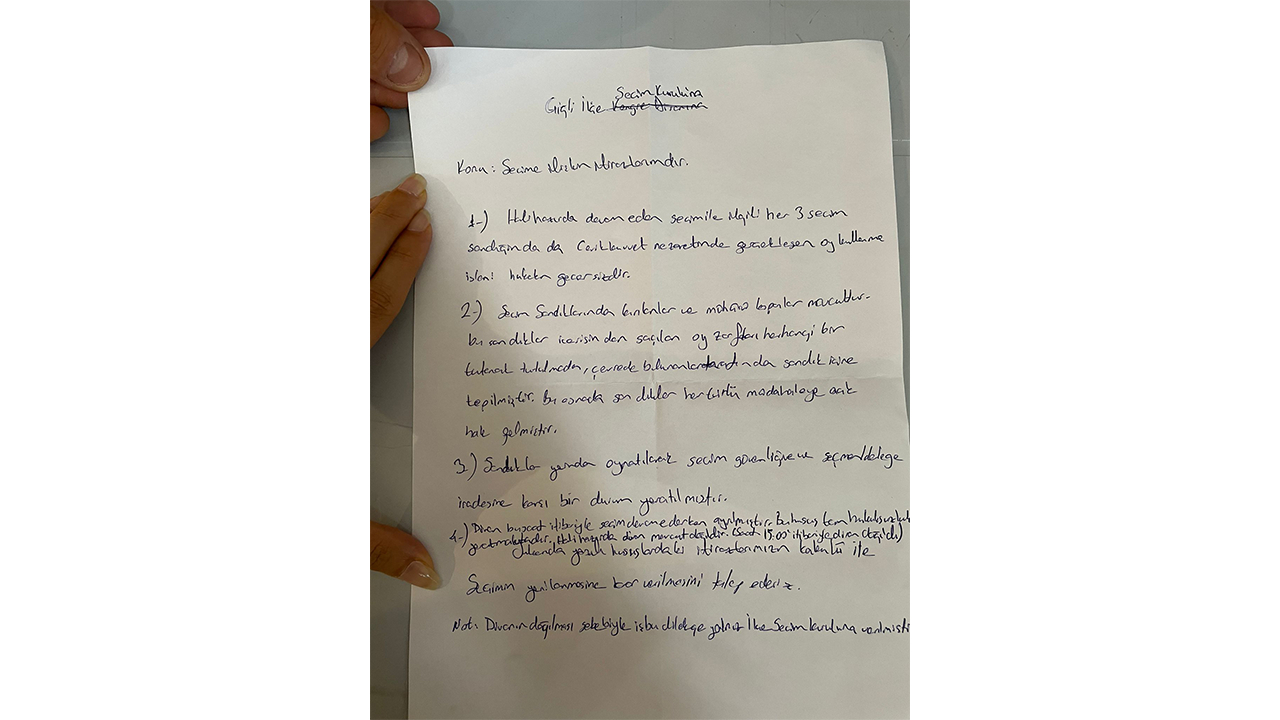 Seçim Kuruluna
Çiğli İlçe Kongre Divanına
Konu: Seçime ilişkin itirazlarımdır.
1-) Halihazırda devam eden seçim ile ilgili her 3 seçim
sandığında da Çevik kuvvet nezaretinde gerçekleşen oy kullanma
işlemi hukuken geçersizdir.
2-) Seçim Sandıklarında kırılanlar ve mühürü kopanlar mevcuttur.
bu sandıklar içerisinden saçılan oy zarfları herhangi bir
tutanak tutulmadan, çevrede bulunanlar tarafından sandık içine
tepilmiştir. Bu esnada sandıklar her türlü müdahaleye açık
hale gelmiştir.
3-) Sandıklar yerinden oynatılarak seçim güvenliğine ve seçmen/delege
iradesine karşı bir durum yaratılmıştır.
4-) Divan bu saat itibariyle seçim devam ederken ayrılmıştır. Bu husus tam hukuksuzluk
yaratmaktadır. Halihazırda divan mevcut değildir. (Saat 15.00 itibariyle divan dağıldı)
Yukarıda yazılı hususlardaki itirazlarımızın kabulü ile
Seçimin yenilenmesine karar verilmesini talep ederiz.
Not: Divanın dağılması sebebiyle işbu dilekçe yalnız İlçe Seçim kuruluna verilmişti